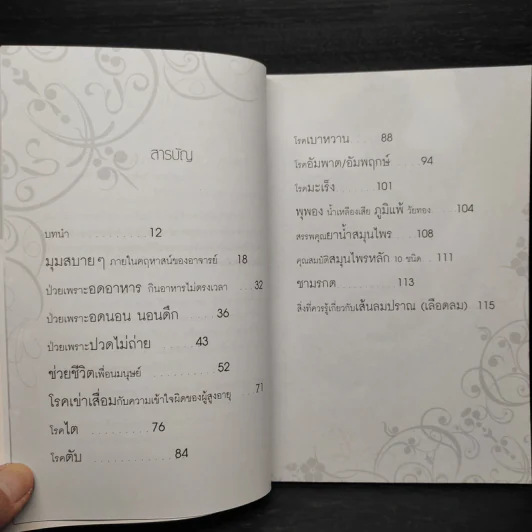 สารบัญ
บทนำ 12
มุมสบาย ๆ ภายในคฤหาสน์ของอาจารย์ 18
ป่วยเพราะอดอาหาร กินอาหารไม่ตรงเวลา 32
ป่วยเพราะอดนอน นอนดึก 36
ป่วยเพราะปวดไม่ถ่าย 43
ช่วยชีวิตเพื่อนมนุษย์ 52
โรคเข่าเสื่อมกับความเข้าใจผิดของผู้สูงอายุ 71
โรคไต 76
โรคตับ 84
โรคเบาหวาน 88
โรคอัมพาต/อัมพฤกษ์ 94
โรคมะเร็ง 101
พุพอง น้ำเหลืองเสีย ภูมิแพ้ วัยทอง 104
สรรพคุณยาน้ำสมุนไพร 108
คุณสมบัติสมุนไพรหลัก 10 ชนิด 111
ชามรกต 113
สิ่งที่ควรรู้เกี่ยวกับเส้นลมปราณ (เลือดลม) 115